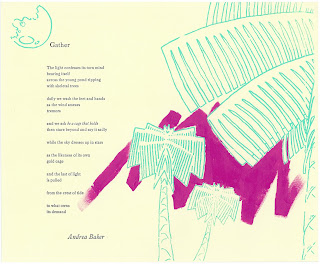 Gather
The light continues its own mind
bearing itself
across the young pond ripping
with skeletal trees
daily we wash the feet and hands
as the wind amasses
treasure
and we ask is a cage that holds
then stare beyond and say it sadly
while the sky dresses up in stars
as the likeness of its own
gold cage
and the last of light
is pulled
from the crest of tide
to what owns
its demand
Andrea Baker